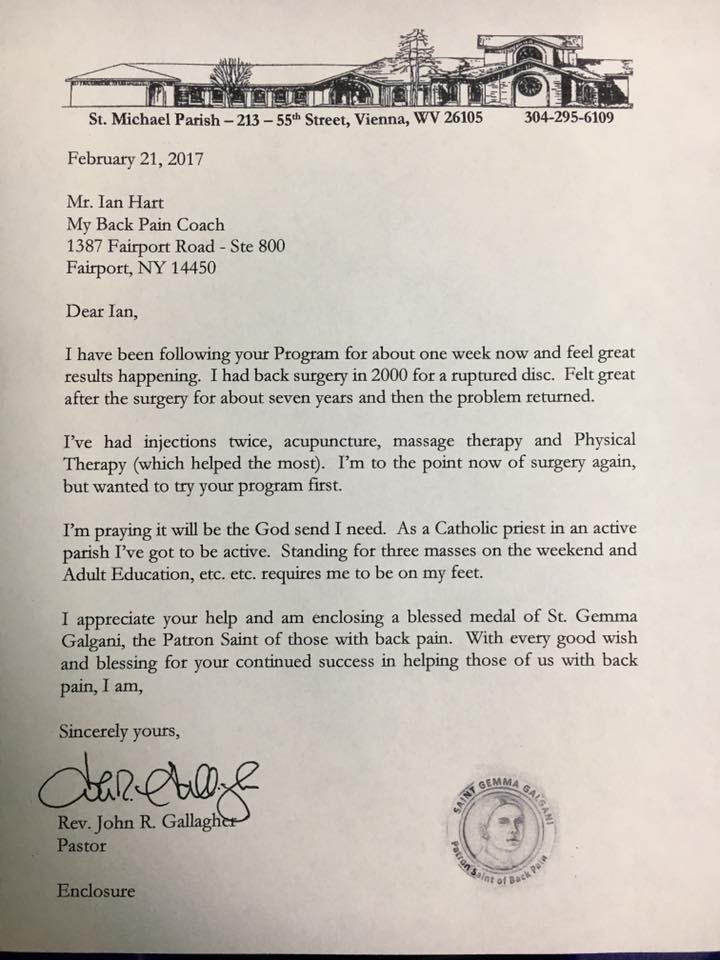 St. Michael Parish – 213 – 55th Street, Vienna, WV 26105 304-295-6109
February 21, 2017
Mr. Ian Hart
My Back Pain Coach
1387 Fairport Road - Ste 800
Fairport, NY 14450
Dear Ian,
I have been following your Program for about one week now and feel great
results happening. I had back surgery in 2000 for a ruptured disc. Felt great
after the surgery for about seven years and then the problem returned.
I've had injections twice, acupuncture, massage therapy and Physical
Therapy (which helped the most). I'm to the point now of surgery again,
but wanted to try your program first.
I'm praying it will be the God send I need. As a Catholic priest in an active
parish I've got to be active. Standing for three masses on the weekend and
Adult Education, etc. etc. requires me to be on my feet.
I appreciate your help and am enclosing a blessed medal of St. Gemma
Galgani, the Patron Saint of those with back pain. With every good wish
and blessing for your continued success in helping those of us with back
pain, I am,
Sincerely yours,
John R. Gallagher
Rev. John R. Gallagher
Pastor
SAINT GEMMA GALGANI
Patron Saint of Back Pain
Enclosure